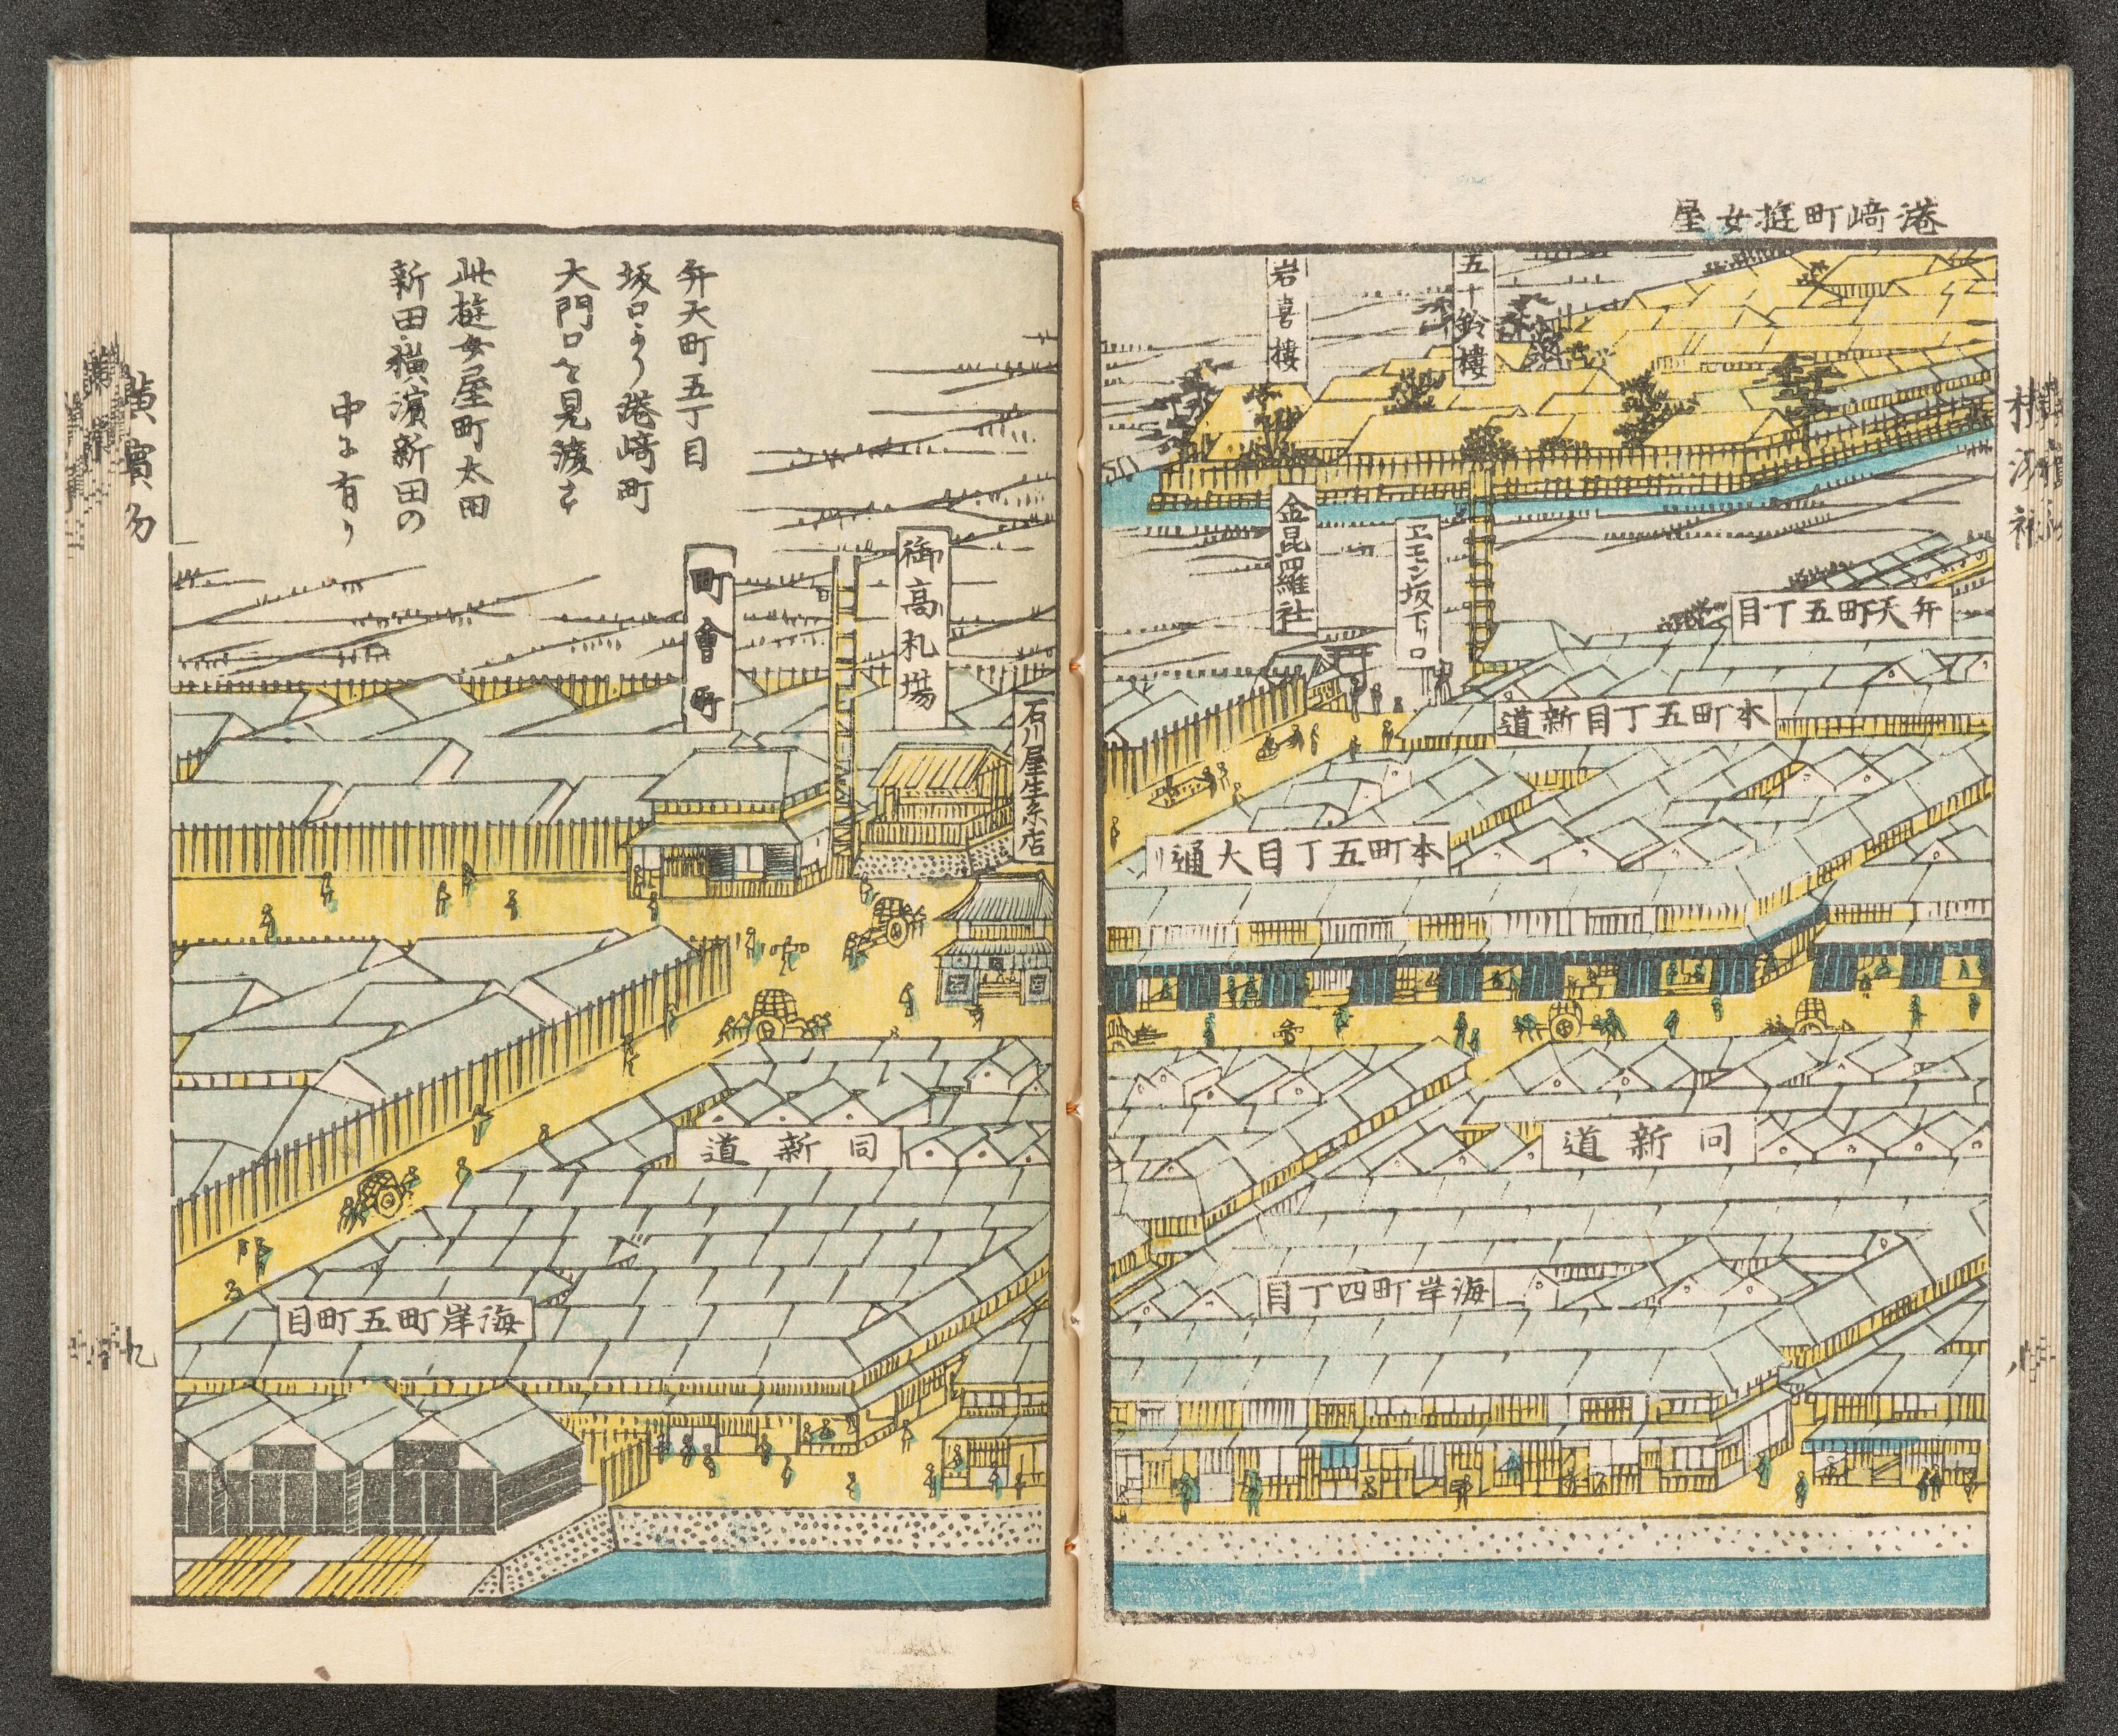 港﨑町遊女屋
五十鈴樓
岩喜樓
金毘羅社
エモン坂下リ口
弁天町五丁目
本町五丁目新道
本町五丁目大通リ
同新道
海岸町四丁目
石川屋生糸店
御高札場
町會所
弁天町五丁目
坂口より港﨑町
大門口を見渡す
此遊女屋町太田
新田横濱新田の
中に有り
同新道
海岸町五町目
九